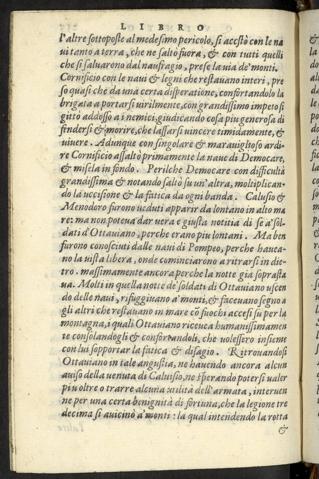 LIBRO
l'altre sottoposte al medesimo pericolo, si accostò con le na
ui tanto a terra, che ne saltò fuora, & con tutti quelli
che si saluarono dal naufragio, prese la uia de' monti.
Cornificio con le naui & legni che restauano interi, pre
so quasi che da una certa disperatione, confortandolo la
brigata a portarsi uirilmente, con grandissimo impeto si
gittò addosso a i nemici, giudicando cosa piu generosa di
fendersi & morire, che lassarsi uincere timidamente, &
uiuere. Adunque con singolare & marauiglioso ardi-
re Cornificio assaltò primamente la naue di Democare,
& misela in fondo. Perilche Democare con difficultà
grandissima & notando saltò su un'altra, moltiplican-
do la uccisione & la fatica da ogni banda. Caluisio &
Menodoro furono ueduti apparir da lontano in alto ma
re: ma non poteua dar uera e giusta notitia di se a' sol-
dati d'Ottauiano, perche erano piu lontani. Ma ben
furono conosciuti dalle naui di Pompeo, perche hauea-
no la uista libera, onde cominciarono a ritrarsi in die-
tro. massimamente ancora perche la notte già soprasta
ua. Molti in quella notte de' soldati di Ottauiano uscen
do delle naui, rifuggiuano a' monti, & faceuano segno a
gli altri che restauano in mare cō fuochi accesi su per la
montagna, i quali Ottauiano riceuea humanissimamen
te consolandogli & confortandoli, che uolessero insieme
con lui sopportar la fatica & disagio. Ritrouandosi
Ottauiano in tale angustia, ne hauendo ancora alcun
auiso della uenuta di Caluisio, ne sperando potersi ualer
piu oltre o trarre alcuna utilità dell'armata, interuen
ne per una certa benignità di fortuna, che la legione tre
decima si auicinò a' monti: la qual intendendo la rotta
&